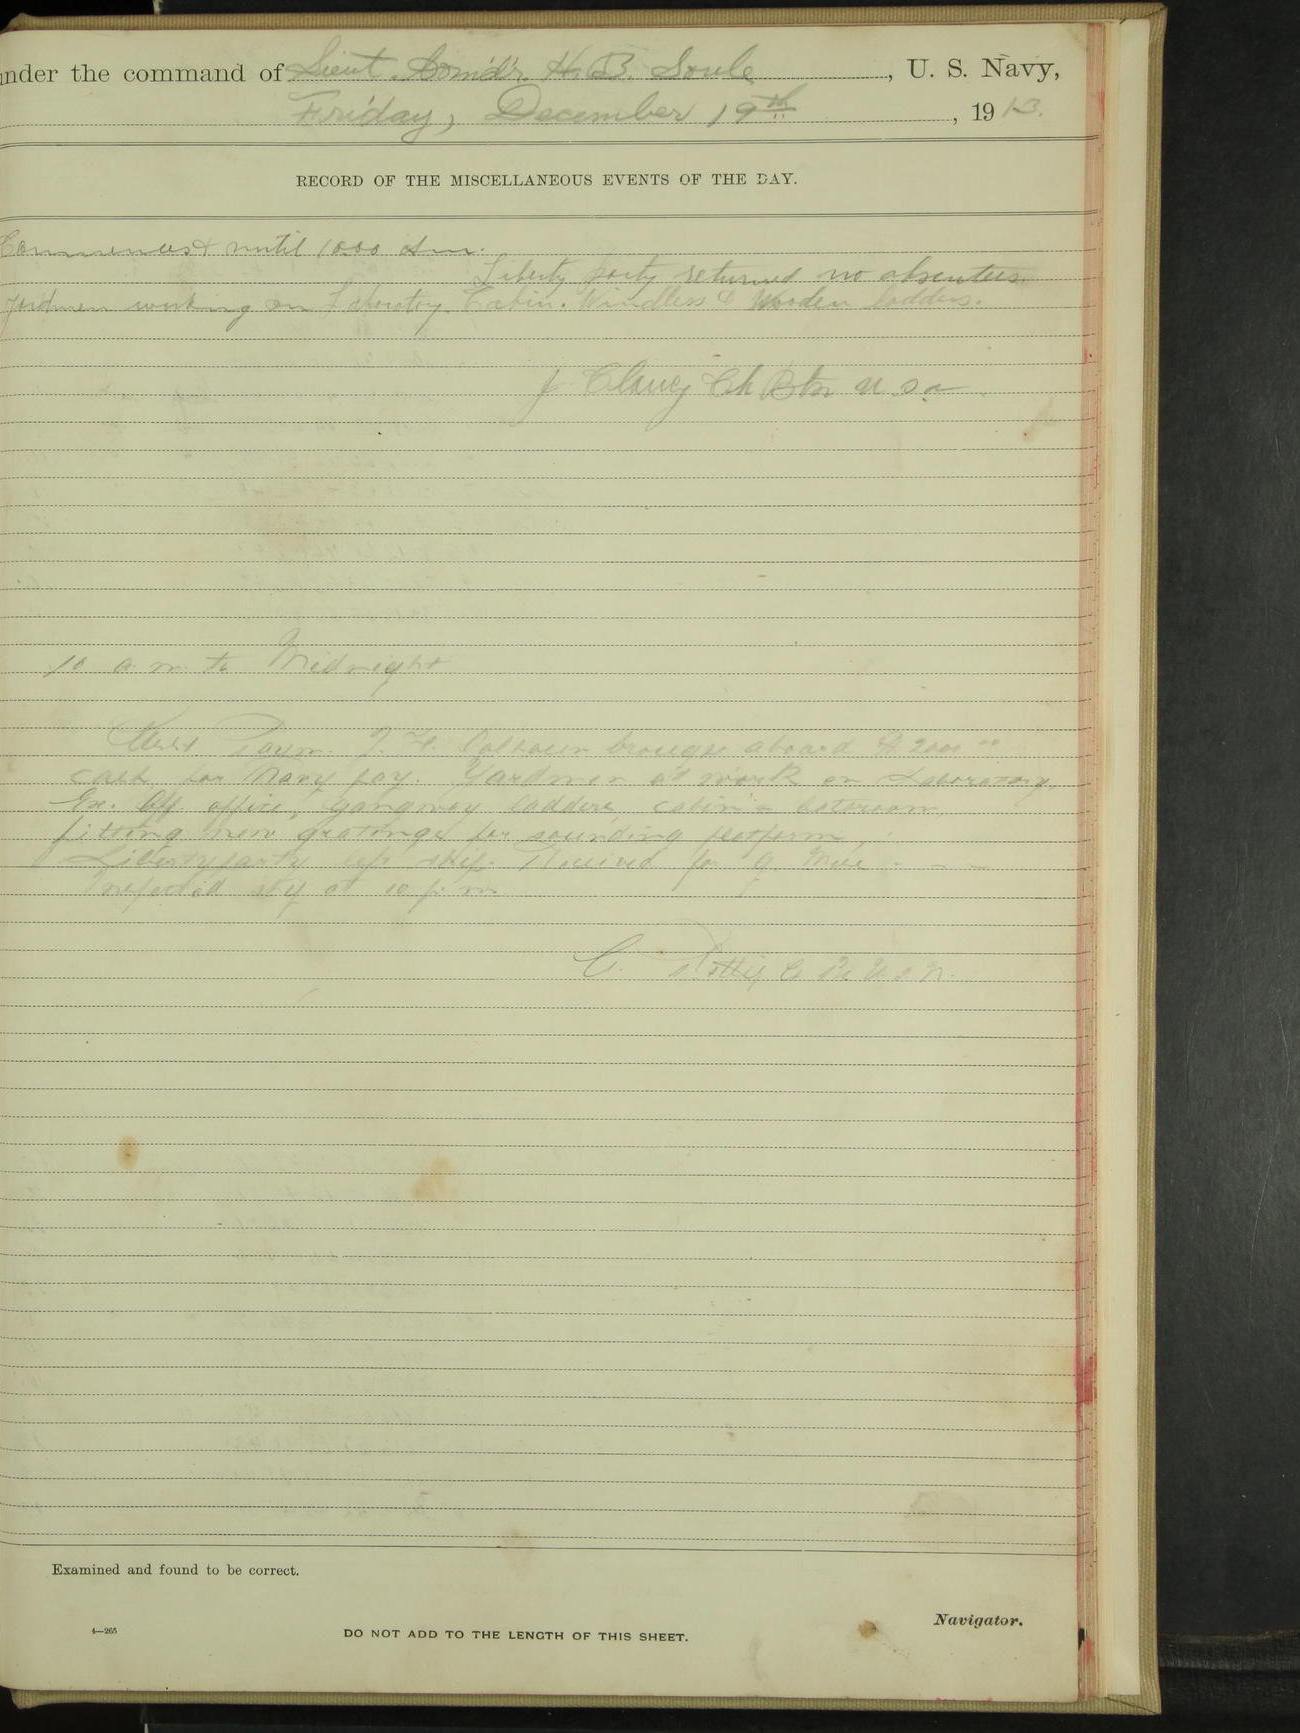 under the command of Lieut. Comd'r. H. B. Soule, U. S. Navy,
Friday, December 19th, 1913.
RECORD OF THE MISCELLANEOUS EVENTS OF THE DAY.
until 10.00 am.
Liberty party returned no absentees.
Yardmen working on Cabin. Windless & Wooden ladders.
J Clancy Ch Btn U.S.N
10 a m to Midnight
Paym. Calhoun brought aboard $ 2000
cash for Navy pay. Yardmen at work on Laboratory,
Ex. Off. office, gangway ladders, cabin bathroom,
fitting new gratings for sounding platform,
Liberty party left ship. Received for g. Mess
Inspected ship at 10 p. m.
U S N.
Examined and found to be correct.
Navigator.
4—265
DO NOT ADD TO THE LENGTH OF THIS SHEET.